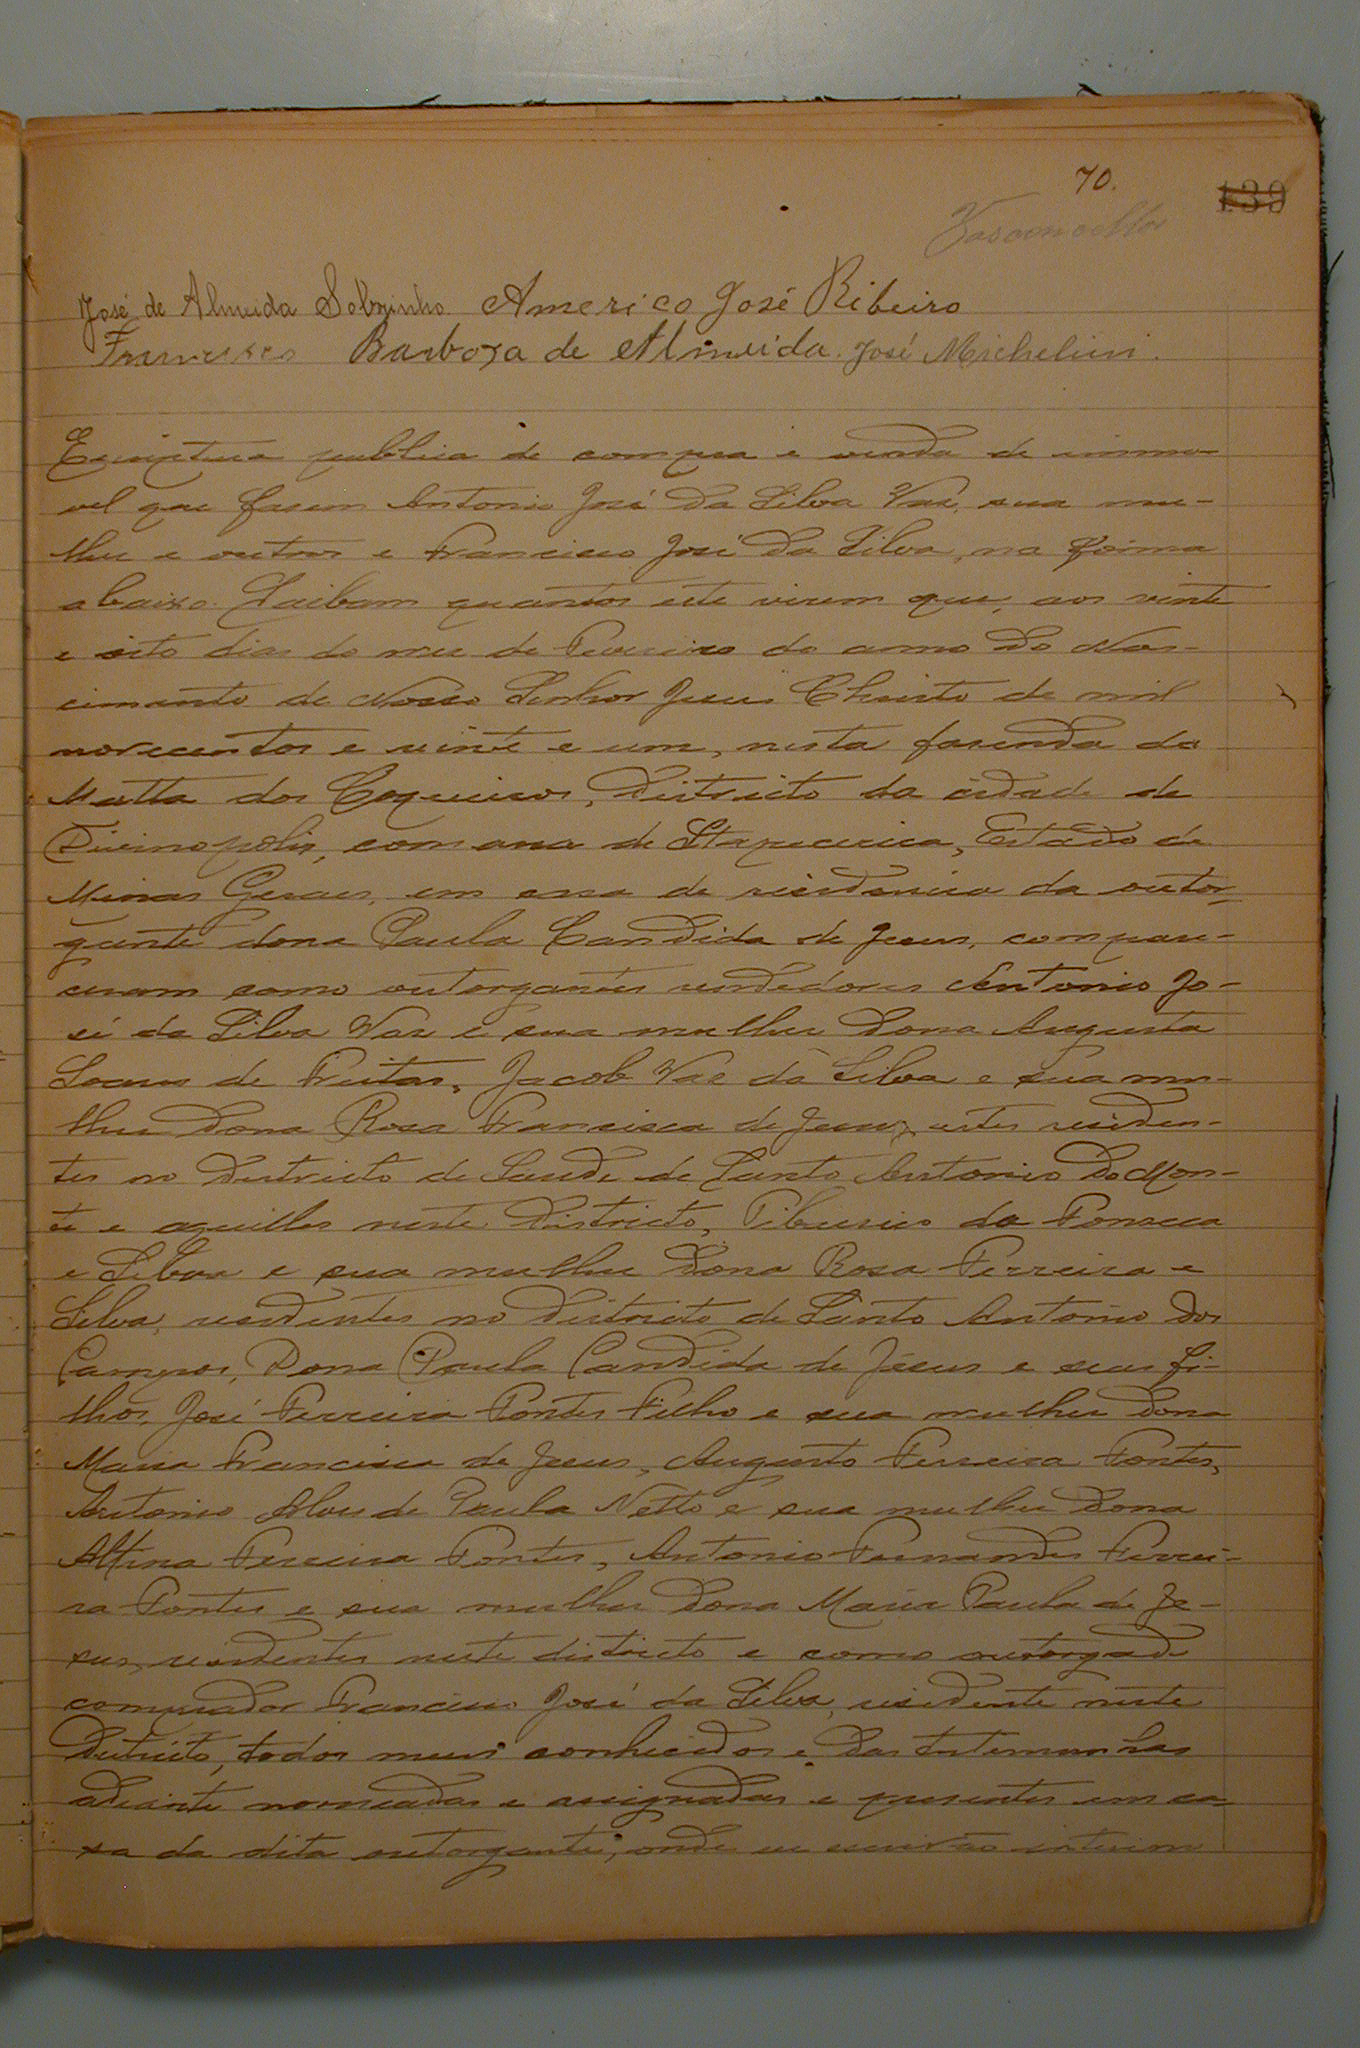 70.
139
Vasconcellos
José de Almeida Sobrinho Americo José Ribeiro
Francisco Barboza de Almeida. José Michelini.
Escriptura publica de compra e venda de immo-
vel que fasem Antonio José da Silva Vaz, sua mu-
lher e outros e Francisco José da Silva, na forma
abaixo. Saibam quantos este virem que, aos vinte
e oito dias do mez de Fevereiro do anno do Nas-
cimento de Nosso Senhor Jesus Christo de mil
novecentos e vinte e um, nesta fasenda da
Matta dos Coqueiros, districto da cidade de
Divinopolis, comarca de Itapecerica, Estado de
Minas Geraes, em casa de residencia da outor-
gante dona Paula Candida de Jesus, compare-
ceram como outorgantes vendedores Antonio Jo-
sé da Silva Vaz e sua mulher Dona Augusta
de Freitas, Jacob Vaz da Silva e sua mu-
lher Dona Rosa Francisca de Jesus, estes residen-
tes no Districto de Saude de Santo Antonio do Mon-
te e aquelles neste Districto, Tiburcio da Fonseca
e Silva e sua mulher Dona Rosa Ferreira e
Silva, residentes no Districto de Santo Antonio dos
Campos, Dona Paula Candida de Jesus e seus fi-
lhos, José Ferreira Pontes Filho e sua mulher Dona
Maria Francisca de Jesus, Augusto Ferreira Pontes,
Antonio Alves de Paula Netto e sua mulher Dona
Altina Ferreira Pontes, Antonio Fernandes Ferrei-
ra Pontes e sua mulher Dona Maria Paula de Je-
sus, residentes neste districto e como outorgado
comprador Francisco José da Silva, residente neste
Districto, todos meus conhecidos e das testemunhas
adeante nomeadas e assignadas e presentes em ca-
sa da dita outorgante, onde eu escrivão interino